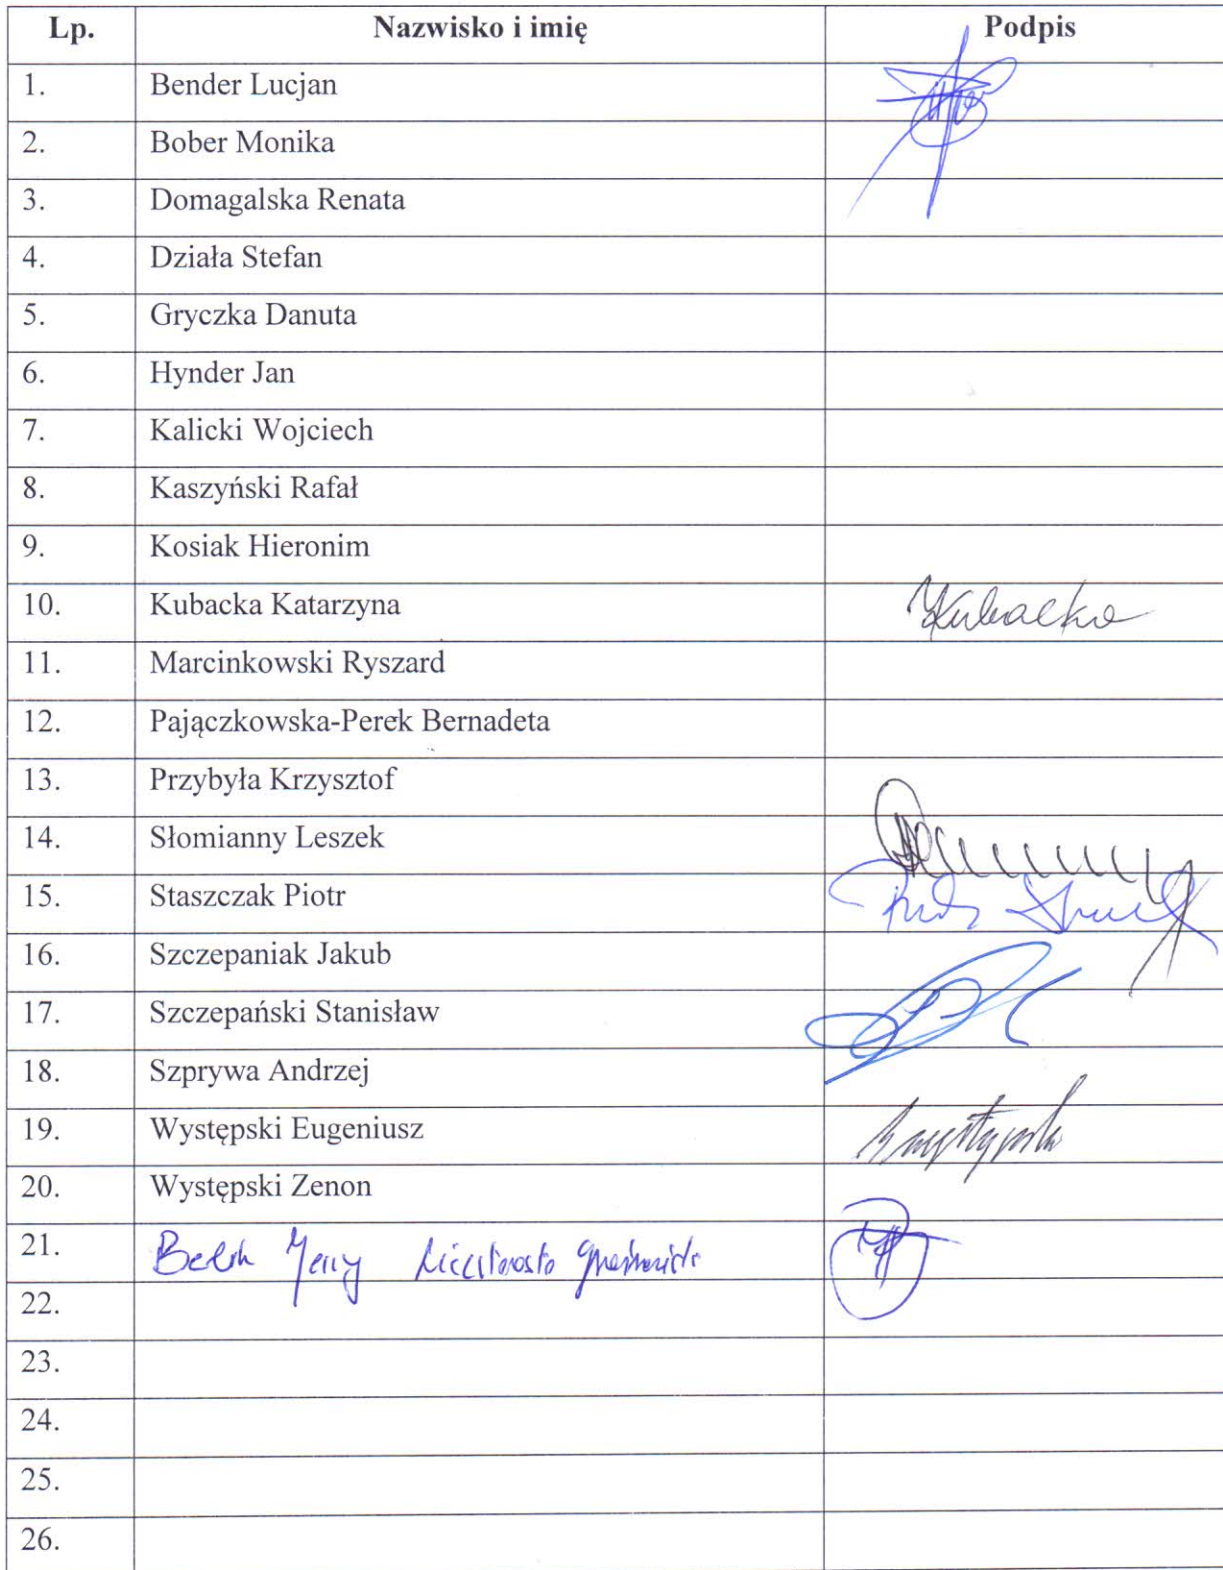 Lp. Nazwisko i imię Podpis
1. Bender Lucjan
2. Bober Monika
3. Domagalska Renata
4. Działa Stefan
5. Gryczka Danuta
6. Hynder Jan
7. Kalicki Wojciech
8. Kaszyński Rafał
9. Kosiak Hieronim
10. Kubacka Katarzyna Kubacka
11. Marcinkowski Ryszard
12. Pajączkowska-Perek Bernadeta
13. Przybyła Krzysztof
14. Słomianny Leszek
15. Staszczak Piotr
16. Szczepaniak Jakub
17. Szczepański Stanisław
18. Szprywa Andrzej
19. Występski Eugeniusz
20. Występski Zenon
21. Jerzy
22.
23.
24.
25.
26.